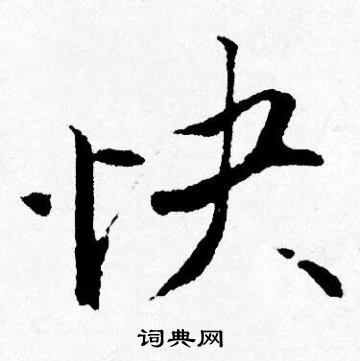 快
词典网